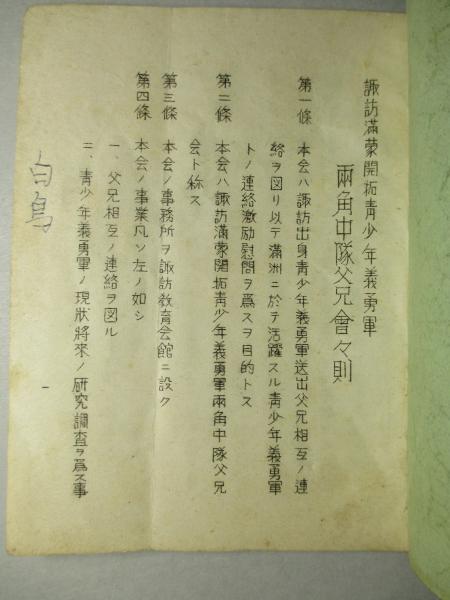 諏訪滿蒙開拓青少年義勇軍
兩角中隊父兄會々則
第一條　本会ハ諏訪出身青少年義勇軍送出父兄相互ノ連
絡ヲ図リ以テ滿洲ニ於テ活躍スル青少年義勇軍
トノ連絡激励慰問ヲ爲スヲ目的トス
第二條　本会ハ諏訪滿蒙開拓青少年義勇軍兩角中隊父兄
会ト称ス
第三條　本会ノ事務所ヲ諏訪敎育会館ニ設ク
第四條　本会ノ事業凡ソ左ノ如シ
一、父兄相互ノ連絡ヲ図ル
二、青少年義勇軍ノ現狀將來ノ研究調査ヲ爲ス事
一
白鳥